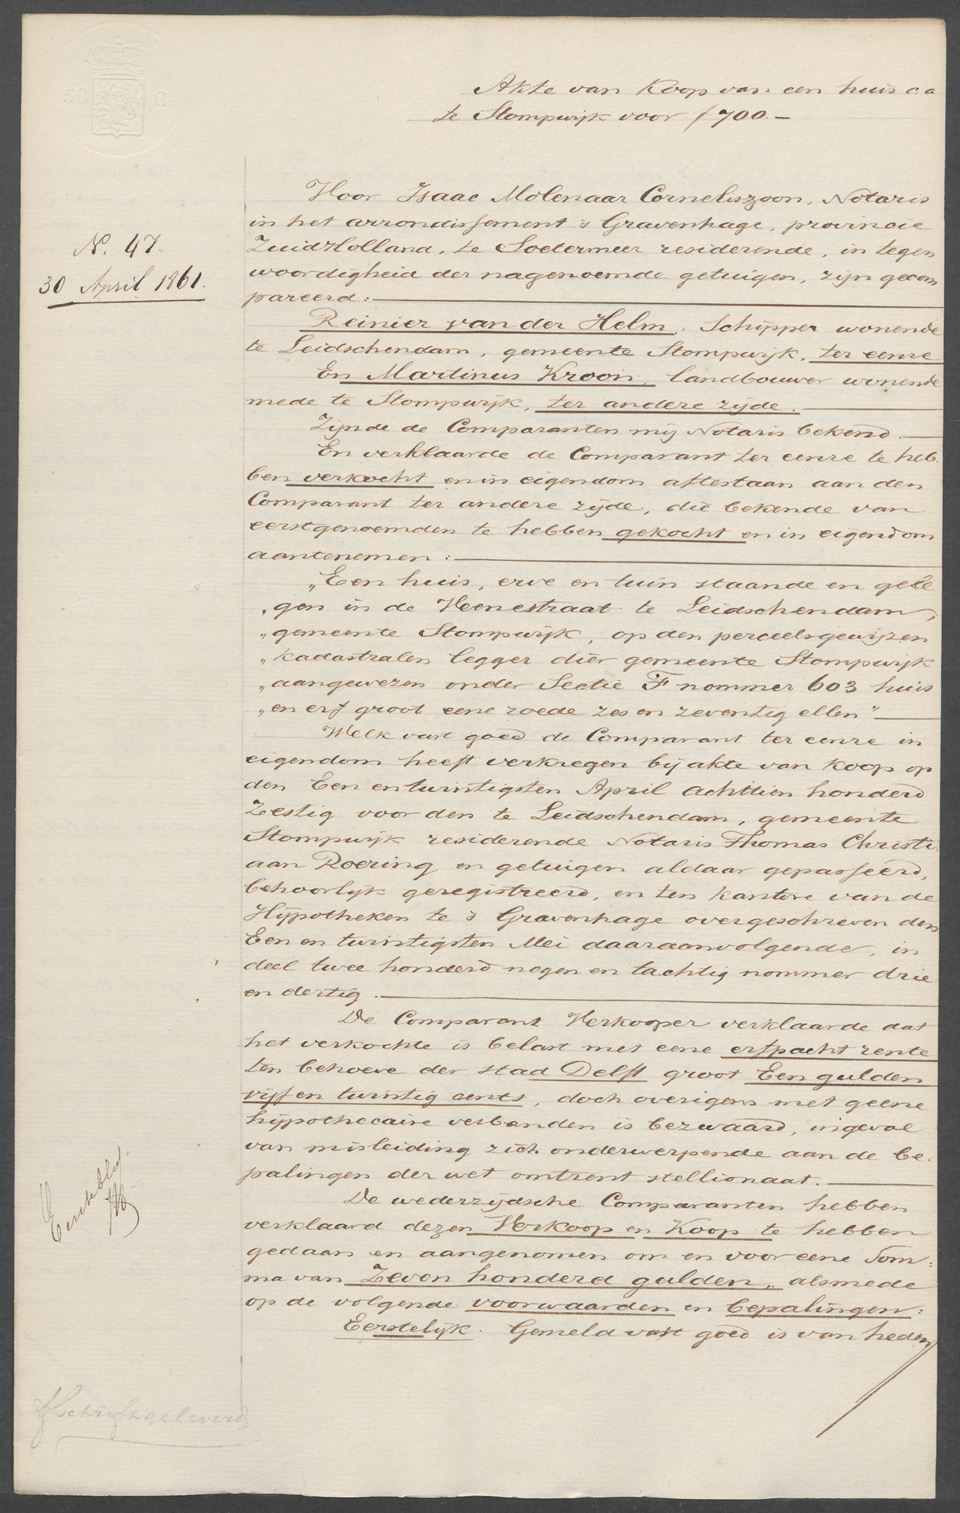 50 C
Akte van Koop van een huis c.a
te Stompwijk voor f 700.-
N. 47.
30 April 1861.
Voor Isaac Molenaar Corneliszoon, Notaris
in het arrondissement 's Gravenhage, provincie
ZuidHolland, te Soetermeer residerende, in tegen
woordigheid der nagenoemde getuigen, zijn gecom
pareerd:
Reinier van der Helm, Schipper wonende
te Leidschendam, gemeente Stompwijk, ter eenre
En Martinus Kroon, landbouwer wonende
mede te Stompwijk, ter andere zijde.
Zijnde de Comparanten mij Notaris bekend.
En verklaarde de Comparant ter eenre te heb
ben verkocht en in eigendom aftestaan aan den
Comparant ter andere zijde, die bekende van
eerstgenoemden te hebben gekocht en in eigendom
aantenemen:
„Een huis, erve en tuin staande en gele
„gen in de Veenestraat te Leidschendam,
„gemeente Stompwijk, op den perceelsgewijzen
„kadastralen legger dier gemeente Stompwijk
„aangewezen onder Sectie F nommer 603 huis
„en erf groot eene roede zes en zeventig ellen"
Welk vast goed de Comparant ter eenre in
eigendom heeft verkregen bij akte van koop op
den Een en twintigsten April achttien honderd
Zestig voor den te Leidschendam, gemeente
Stompwijk residerende Notaris Thomas Christi
aan Roering en getuigen aldaar gepasseerd,
behoorlijk geregistreerd, en ten kantore van de
Hypotheken te 's Gravenhage overgeschreven den
Een en twintigsten Mei daaraanvolgende, in
deel twee honderd negen en tachtig nommer drie
en dertig.
De Comparant Verkooper verklaarde dat
het verkochte is belast met eene erfpacht rente
ten behoeve der stad Delft groot Een gulden
vijf en twintig cents, doch overigens met geene
hypothecaire verbanden is bezwaard, ingeval
van misleiding zich onderwerpende aan de be-
palingen der wet omtrent stellionaat.
De wederzijdsche Comparanten hebben
verklaard dezen Verkoop en Koop te hebben
gedaan en aangenomen om en voor eene Som-
ma van Zeven honderd gulden, alsmede
op de volgende voorwaarden en bepalingen:
Eerstelijk. Gemeld vast goed is van heden
Eerste blad.
Afschrift geleverd